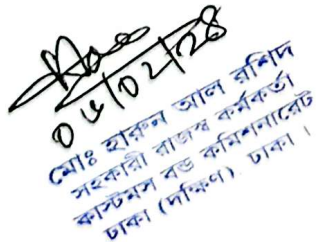 ০৮/০২/২৪
মোঃ হারুন আল রশিদ
সহকারী রাজস্ব কর্মকর্তা
কাস্টমস বন্ড কমিশনারেট
ঢাকা (দক্ষিণ), ঢাকা ।